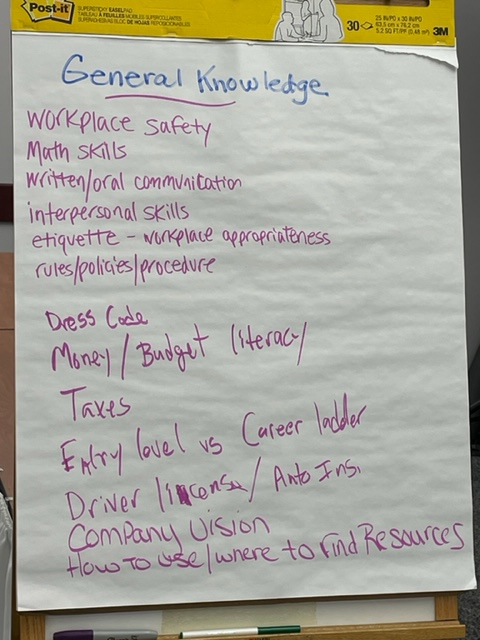 Post-it
SUPERSTICKY EASEL PAD
TABLEAU À FEUILLES MOBILES SUPERCOLLANTES
SUPERADHESIVAS BLOC DE HOJAS REPOSICIONABLES
30
25 IN/PO x 30 IN/PO
63,5 cm x 76,2 cm
5.2 SQ FT/PP (0,48 m²)
3M
General Knowledge
workplace safety
Math skills
written/oral communication
interpersonal skills
etiquette - workplace appropriateness
rules/policies/procedure
Dress Code
Money/Budget literacy
Taxes
Entry level vs Career ladder
Driver license/Auto Ins.
Company Vision
How to use/where to Find Resources